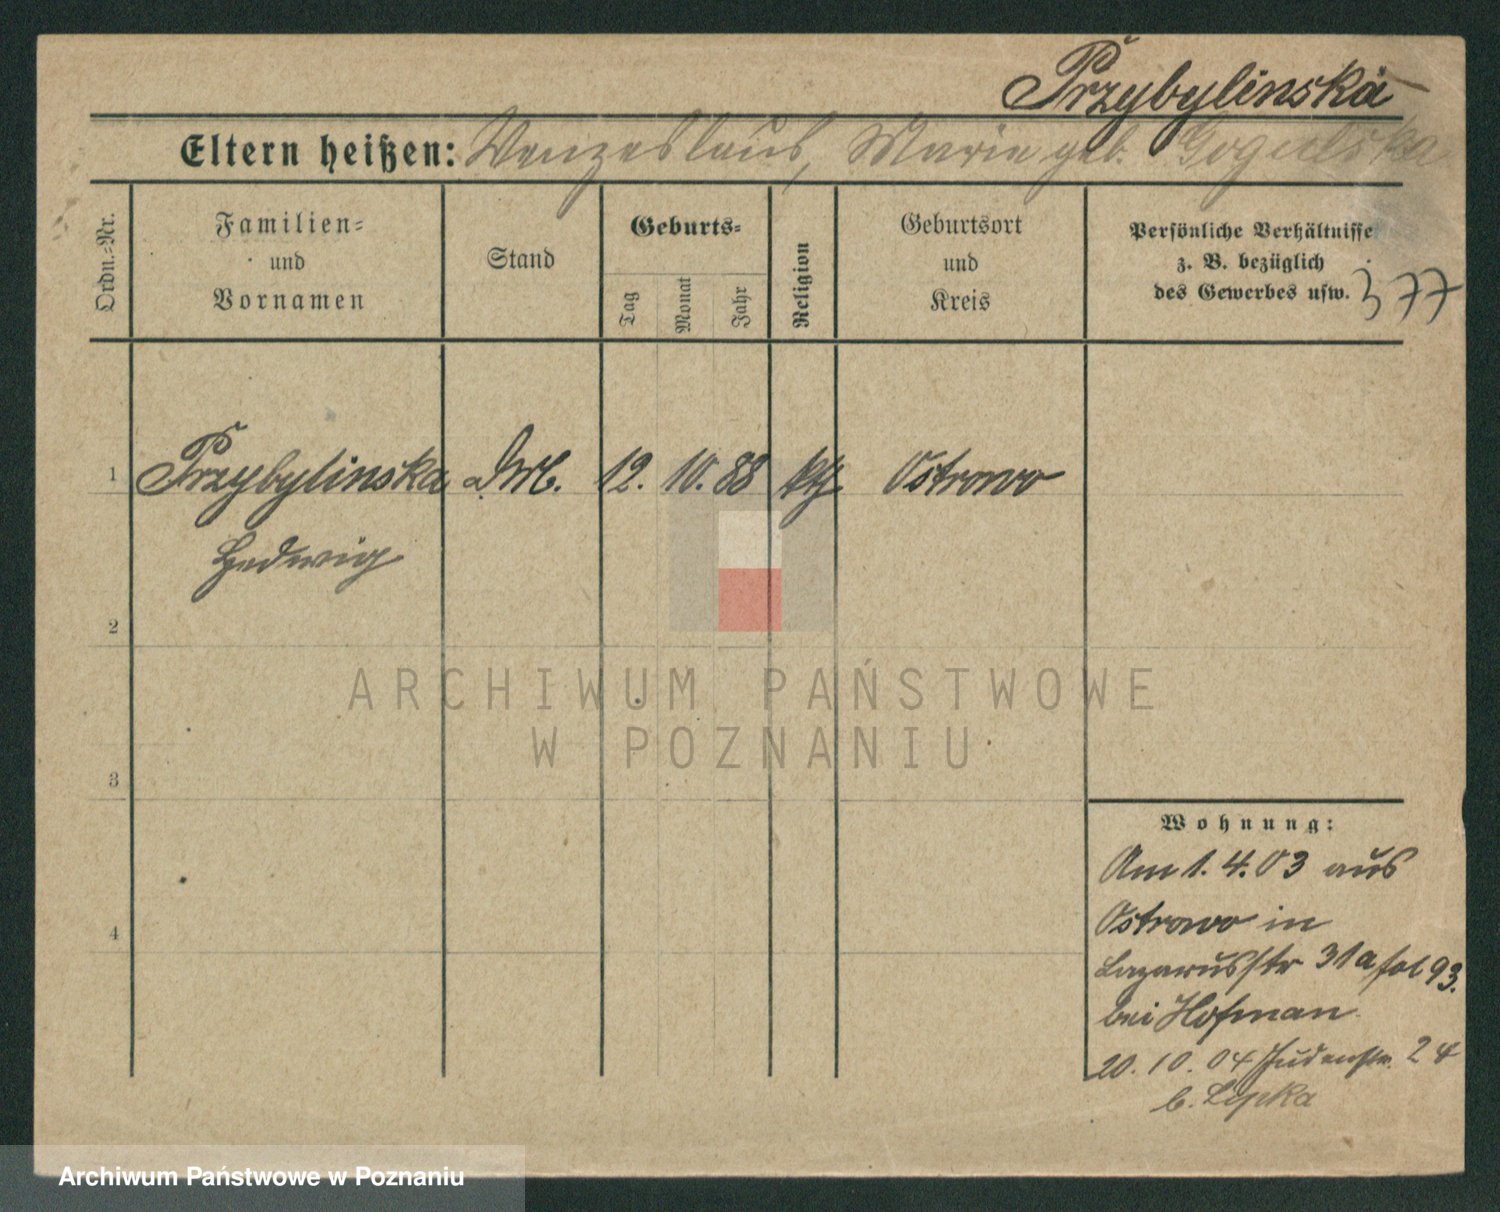 Przybylinska
Eltern heißen: Wenzeslaus, Marie geb. Gogulska
Ordn.-Nr.
Familien-
und
Vornamen
Stand
Geburts-
Tag
Monat
Jahr
Religion
Geburtsort
und
Kreis
Persönliche Verhältnisse
z. B. bezüglich
des Gewerbes usw.
377
1 Przybylinska 12. 10. 88 kth. Ostrowo
Hedwig
2
3
4
ARCHIWUM PAŃSTWOWE
W POZNANIU
Wohnung:
Am 1. 4. 03 aus
Ostrowo in
Lazarusstr 31a fol 93.
bei Hofman
20. 10. 04 Judenstr. 24
b. Lipka
Archiwum Państwowe w Poznaniu